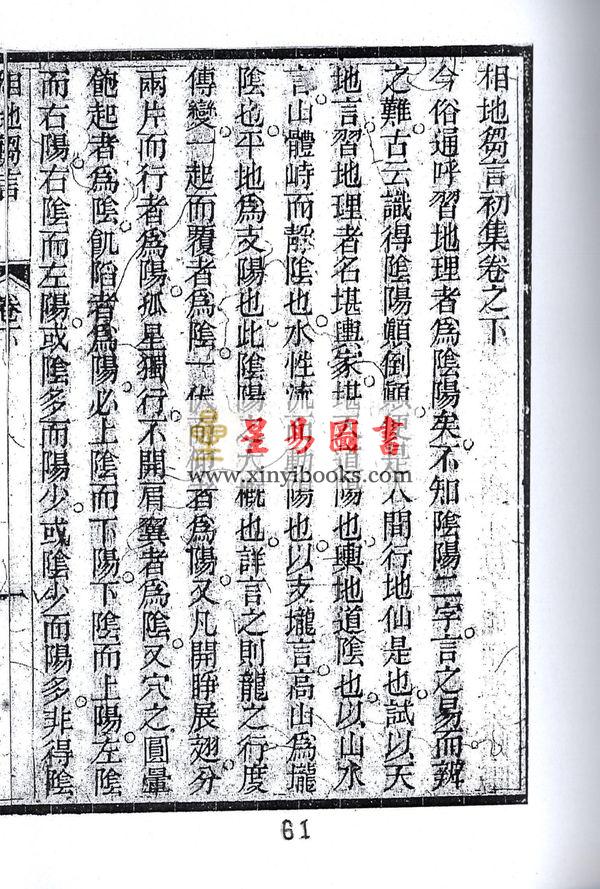 相地芻言初集卷之下
今俗通呼習地理者為陰陽矣不知陰陽二字言之易而辨
之難古云識得陰陽顛倒顛 人間行地仙是也試以天
地言習地理者名堪輿家堪 道陽也輿地道陰也以山水
言山體峙而靜陰也水性流 動陽也以支壠言高山為壠
陰也平地為支陽也此陰陽 大槪也詳言之則龍之行度
傳變一起而覆者為陰一伏 者為陽又凡開睜展翅分
兩片而行者為陽孤星獨行不開肩翼者為陰又穴之圓暈
飽起者為陰飢陷者為陽必上陰而下陽下陰而上陽左陰
而右陽右陰而左陽或陰多而陽少或陰少而陽多非得陰
相地芻言
卷下
一
星易圖書
www.xinyibooks.com
61